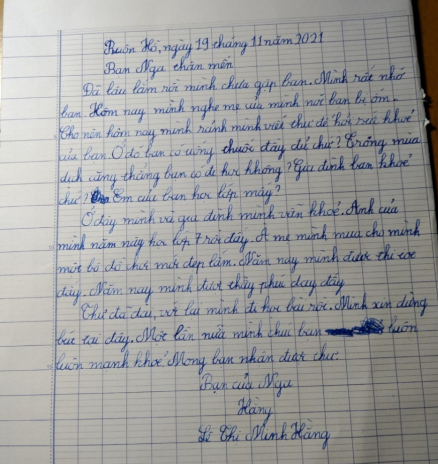 Buôn Hồ, ngày 19 tháng 11 năm 2021
Bạn Nga thân mến
Đã lâu lắm rồi mình chưa gặp bạn. Mình rất nhớ
bạn. Hôm nay mình nghe mẹ của mình nói bạn bị ốm
Cho nên hôm nay mình rảnh mình viết thư để hỏi sức khoẻ
của bạn. Ở đó bạn có uống thuốc đầy đủ chứ? Trong mùa
dịch căng thẳng bạn có đi học không? Gia đình bạn khoẻ
chứ? Em của bạn học lớp mấy?
Ở đây mình và gia đình mình vẫn khoẻ. Anh của
mình năm nay học lớp 7 rồi đấy. À mẹ mình mua cho mình
một bộ đồ chơi mới đẹp lắm. Năm nay mình được thi
đấy. Năm nay mình được thầy phú dạy đấy
Thư đã dài, với lại mình đi học bài rồi. Mình xin dừng
bút tại đây. Một lần nữa mình chúc bạn luôn
luôn mạnh khoẻ. Mong bạn nhận được thư.
Bạn của Nga
Hằng
Lê Thị Minh Hằng